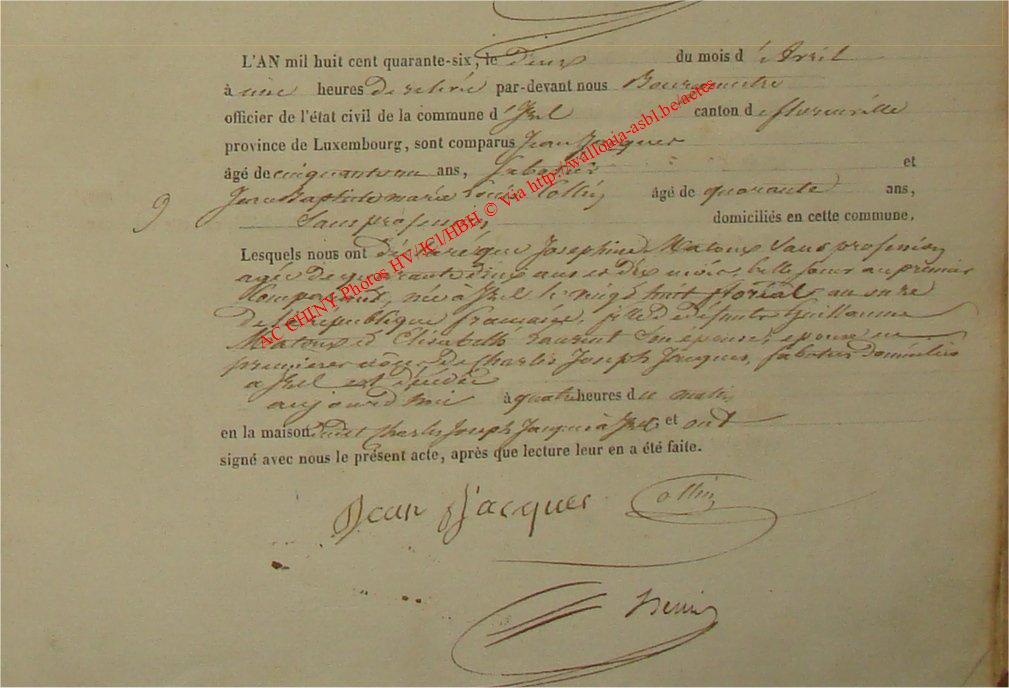 L'AN mil huit cent quarante-six, le deux du mois d'Avril
à une heures de relevée par-devant nous Bourgmestre
officier de l'état civil de la commune d'Izel canton de florenville
province de Luxembourg, sont comparus Jean Jacques
âgé de cinquante un ans, Sabotier et
Jean Baptiste marie Collin âgé de quarante ans,
9 Sans profession domiciliés en cette commune,
Lesquels nous ont déclaré que Josephine Maloux Sans profession
agée de quarante deux ans et dix mois, belle sœur au premier
Comparant, née à Izel le vingt huit floréal an onze
de la république francaise, fille de défunts Guillaume
Maloux et Elisabeth Laurent Son épouse, épouse en
premieres nôces de Charles Joseph Jacques, sabotier domicilié
a Izel est décédée
aujourd'hui à quatre heures du matin
en la maison dudit Charles Joseph Jacques à Izel et ont
signé avec nous le présent acte, après que lecture leur en a été faite.
Jean Jacques Collin
AC CHINY-Photos HV/JCl/HBH © Via http://wallonia-asbl.be/actes